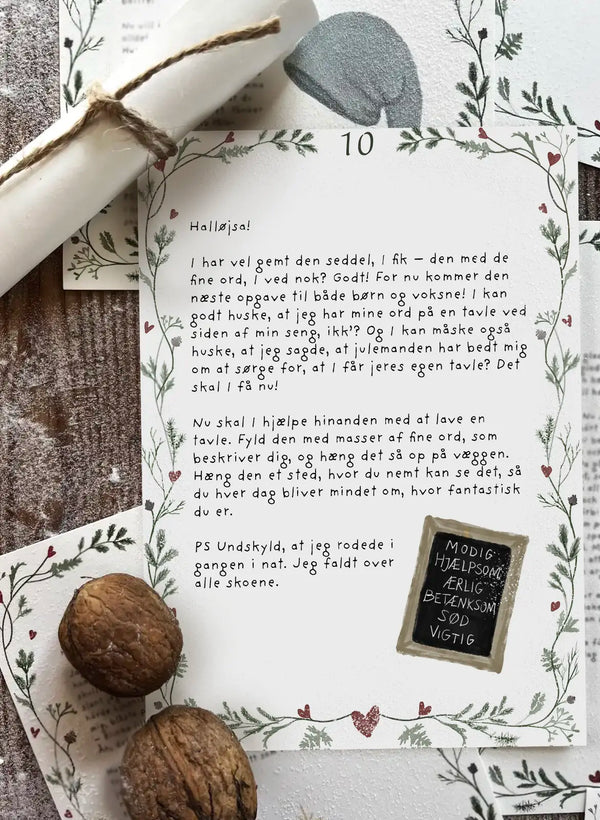 10
Halløjsa!
I har vel gemt den seddel, I fik – den med de
fine ord, I ved nok? Godt! For nu kommer den
næste opgave til både børn og voksne! I kan
godt huske, at jeg har mine ord på en tavle ved
siden af min seng, ikk'? Og I kan måske også
huske, at jeg sagde, at julemanden har bedt mig
om at sørge for, at I får jeres egen tavle? Det
skal I få nu!
Nu skal I hjælpe hinanden med at lave en
tavle. Fyld den med masser af fine ord, som
beskriver dig, og hæng det så op på væggen.
Hæng den et sted, hvor du nemt kan se det, så
du hver dag bliver mindet om, hvor fantastisk
du er.
PS Undskyld, at jeg rodede i
gangen i nat. Jeg faldt over
alle skoene.
MODIG
HJÆLPSOM
ÆRLIG
BETÆNKSOM
SØD
VIGTIG